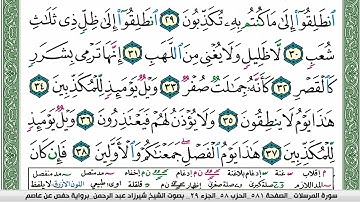 ٱنطَلِقُوٓا۟ إِلَىٰ مَا كُنتُم بِهِۦ تُكَذِّبُونَ ٢٩ ٱنطَلِقُوٓا۟ إِلَىٰ ظِلٍّ ذِى ثَلَٰثِ
شُعَبٍ ٣٠ لَّا ظَلِيلٍ وَلَا يُغْنِى مِنَ ٱللَّهَبِ ٣١ إِنَّهَا تَرْمِى بِشَرَرٍ
كَٱلْقَصْرِ ٣٢ كَأَنَّهُۥ جِمَٰلَتٌ صُفْرٌ ٣٣ وَيْلٌ يَوْمَئِذٍ لِّلْمُكَذِّبِينَ ٣٤
هَٰذَا يَوْمُ لَا يَنطِقُونَ ٣٥ وَلَا يُؤْذَنُ لَهُمْ فَيَعْتَذِرُونَ ٣٦ وَيْلٌ يَوْمَئِذٍ
لِّلْمُكَذِّبِينَ ٣٧ هَٰذَا يَوْمُ ٱلْفَصْلِ جَمَعْنَٰكُمْ وَٱلْأَوَّلِينَ ٣٨ فَإِن كَانَ
سورة المرسلات الصفحة ٥٨١ الحزب ٥٨ الجزء ٢٩ بصوت الشيخ شيرزاد عبد الرحمن برواية حفص عن عاصم